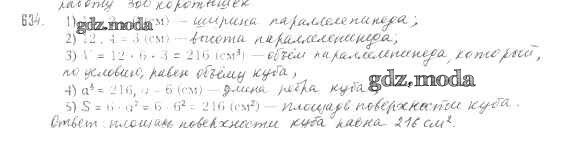 работу 300 коротышек
634. 1) (см) — ширина параллелепипеда;
gdz.moda
2) 12 : 4 = 3 (см) — высота параллелепипеда;
3) V = 12 · 6 · 3 = 216 (см³) — объём параллелепипеда, который,
по условию, равен объёму куба;
gdz.moda
4) a³ = 216, a = 6 (см) — длина ребра куба
5) S = 6 · a² = 6 · 6² = 216 (см²) — площадь поверхности куба.
Ответ: площадь поверхности куба равна 216 см².